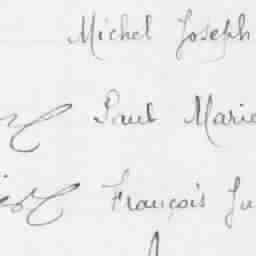 Michel Joseph
Paul Marie
François